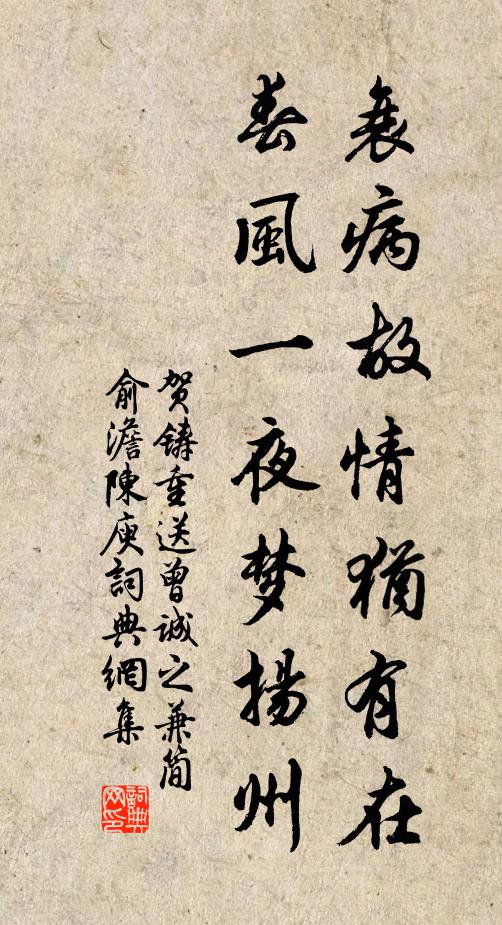 衰病故情猶有在
春風一夜梦揚州
贺鑄重送曾誠之兼简
俞澹陳庾詞典網集
詞典网印